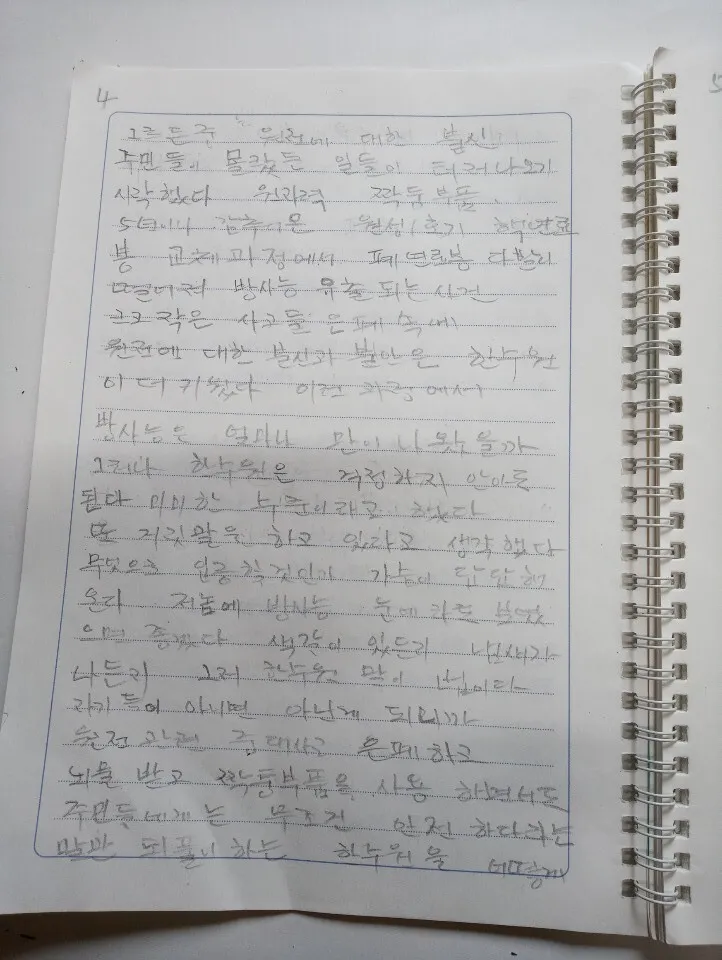 4
그르든중 원전에 대한 불신
주민들이 몰랐든 일들이 터저나오기
시작했다 원자력 짝퉁부품.
5년이나 감추어온 월성1호기 핵연료
봉 교체과정에서 폐연료봉 다발이
떨어져 방사능 유출되는 사건
크고작은 사고들 은폐 속에
원전에 대한 불신과 불안은 한수원
이 더 키웠다 이런 과정에서
방사능은 얼마나 많이 나왔을까
그러나 한수원은 걱정하지 안아도
된다 미미한 수준이라고 했다
또 거짓말을 하고 있다고 생각했다
무엇으로 입증할것인가 가슴이 답답해
온다 저놈에 방사능 눈에라도 보였
으면 좋겠다 색갈이 있든지 냄새가
나든지 그저 한수원 말이 법이다
자기들이 아니면 아닌게 되니까
원전관련 중대사고 은폐하고
뇌물 받고 짝퉁부품을 사용 하면서도
주민들에게는 무조건 안전 하다라는
말만 되풀이 하는 한수원을 어떻게
5